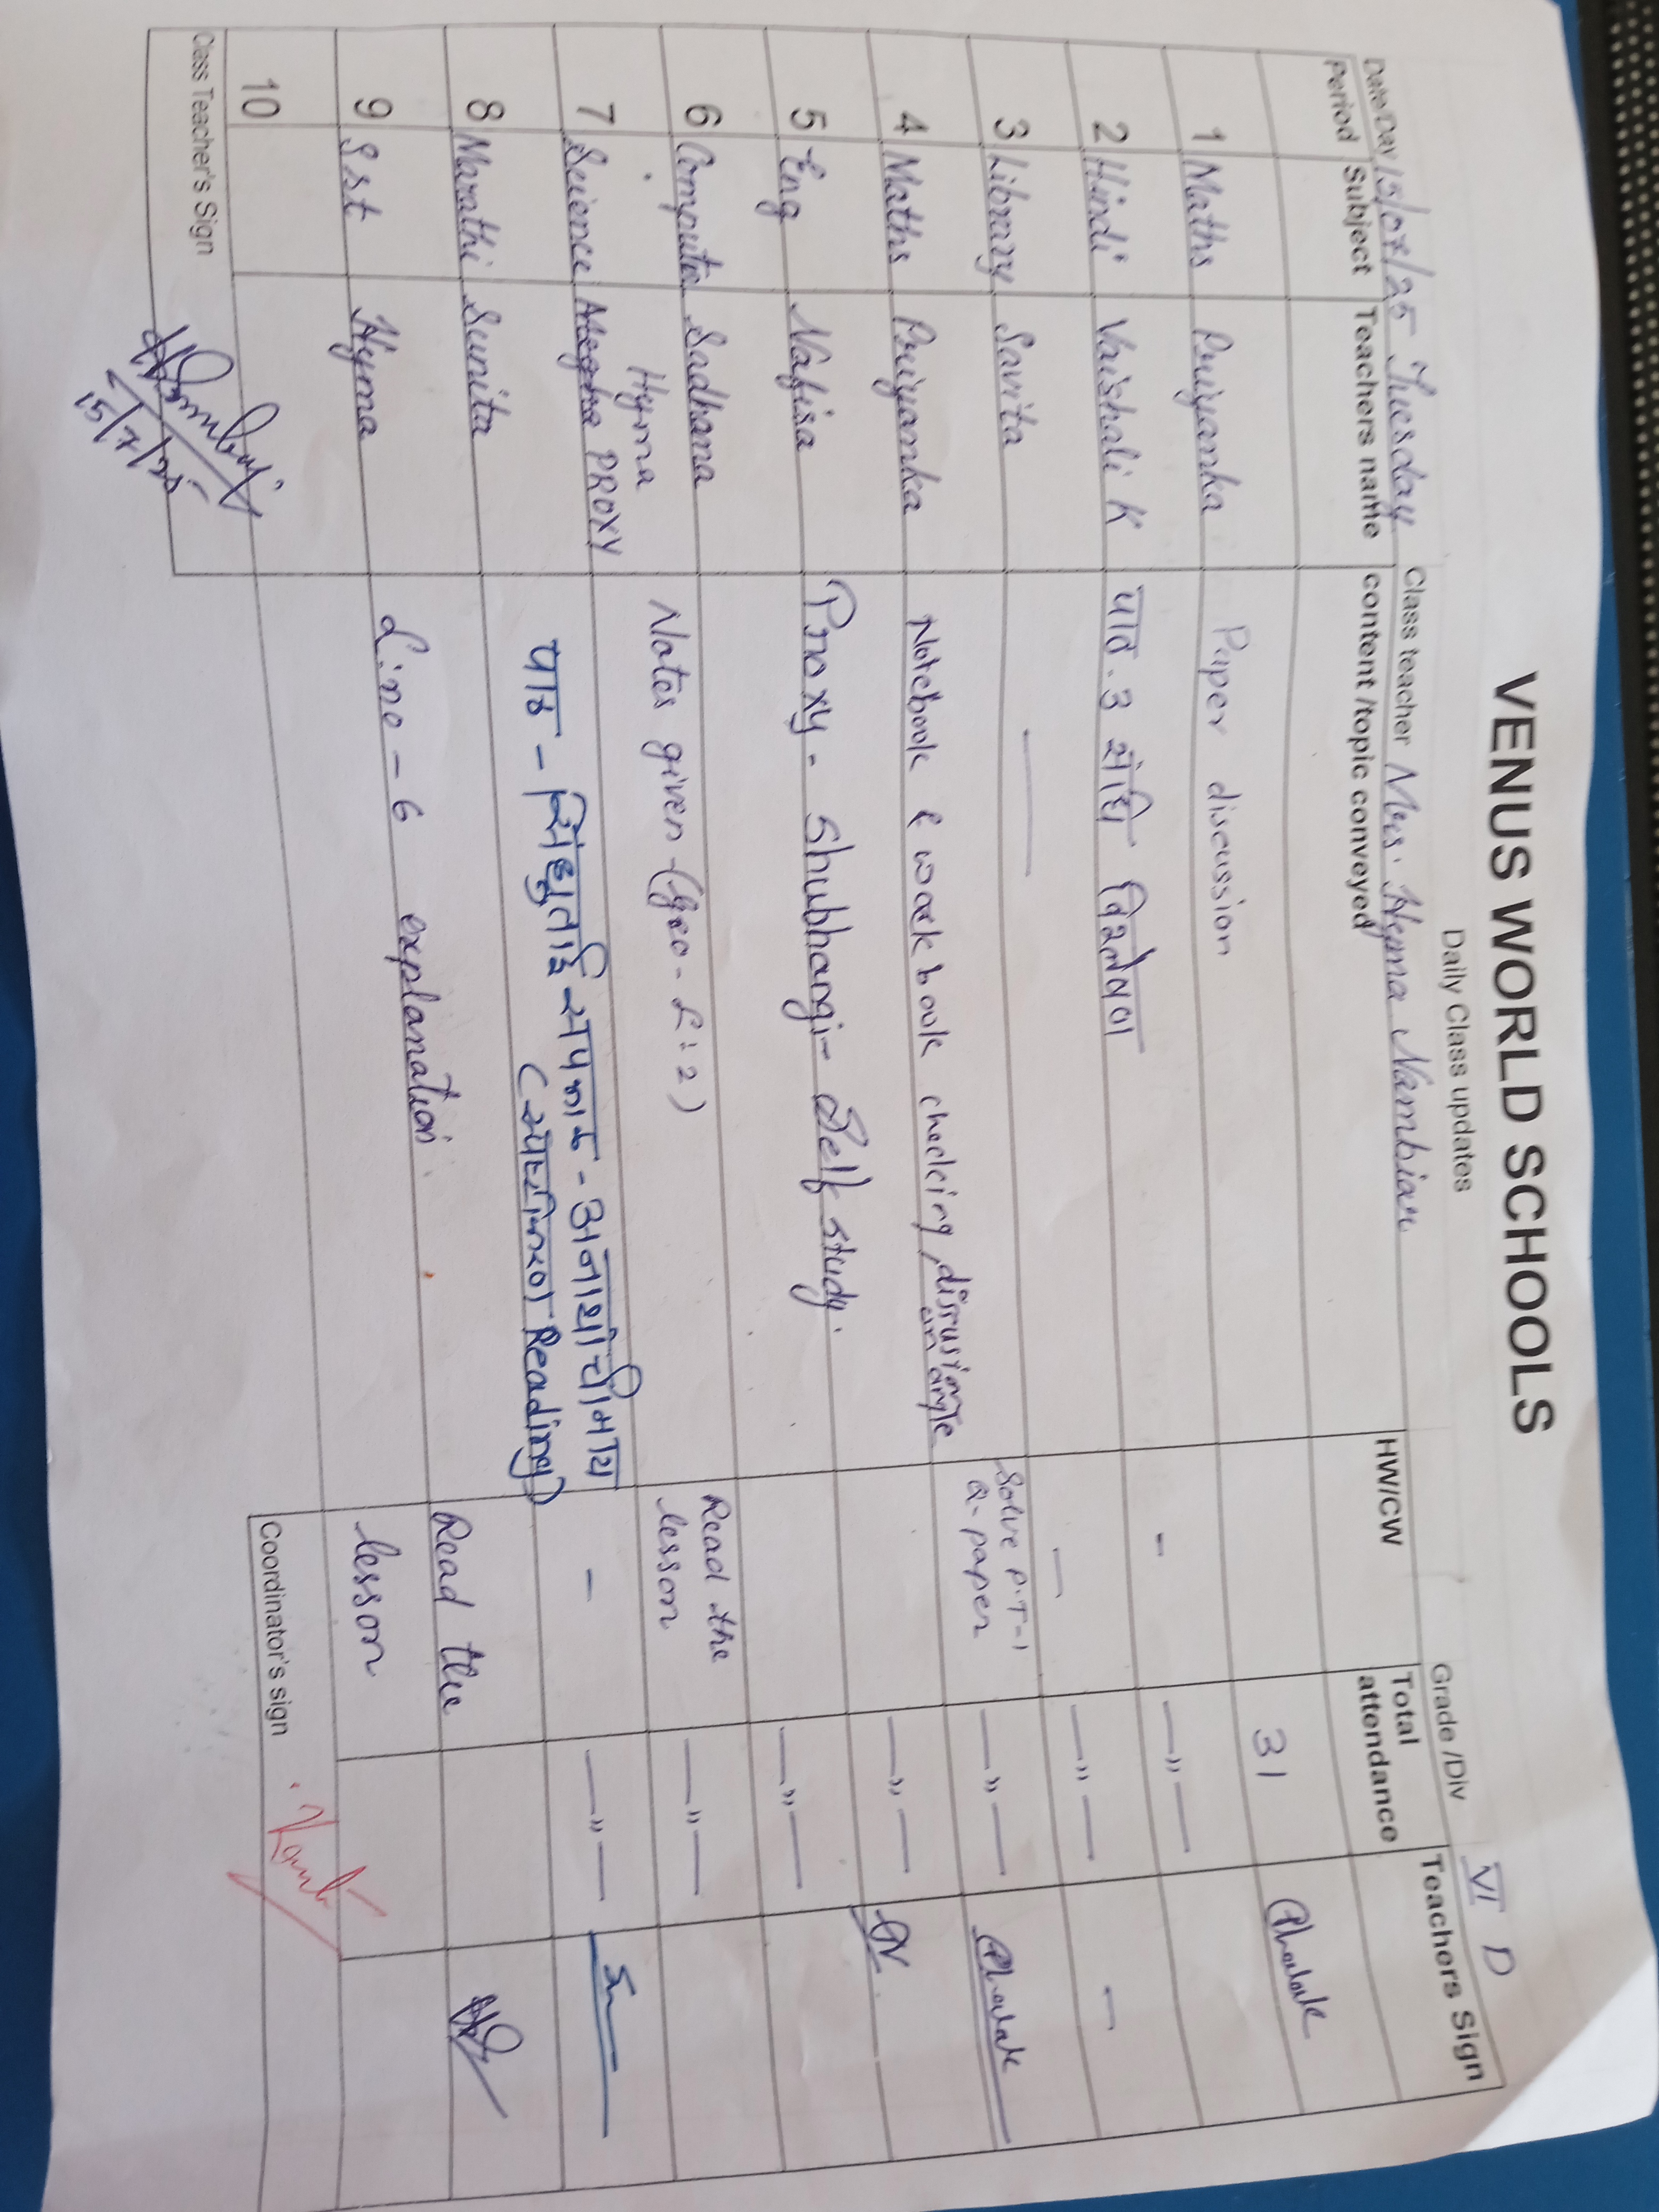 VENUS WORLD SCHOOLS
Daily Class updates
Date/Day 15/07/25 Tuesday Class teacher Mrs. Hyma Nambiar Grade /Div VI D
Period Subject Teachers name content /topic conveyed HW/CW Total attendance Teachers Sign
1 Maths Priyanka Paper discussion 31
2 Hindi Vaishali K पाठ. 3 संधि विश्लेषण - —〃—
3 Library Savita — — —〃— —
4 Maths Priyanka Notebook & workbook checking, disrustion on angle Solve P.T-1 Q-paper —〃—
5 Eng Nafisa Proxy - Shubhangi - Self study. —〃—
6 Computer Sadhana —〃—
7 Science Megha PROXY Hyma Notes given (Geo - L: 2) Read the lesson —〃—
8 Marathi Sunita पाठ - सिंधुताई सपकाळ - अनाथांची माय - —〃—
Reading)
9 SSt Hyma L: no - 6 explanation Read the lesson
10
Class Teacher's Sign 15/7/25 Coordinator's sign